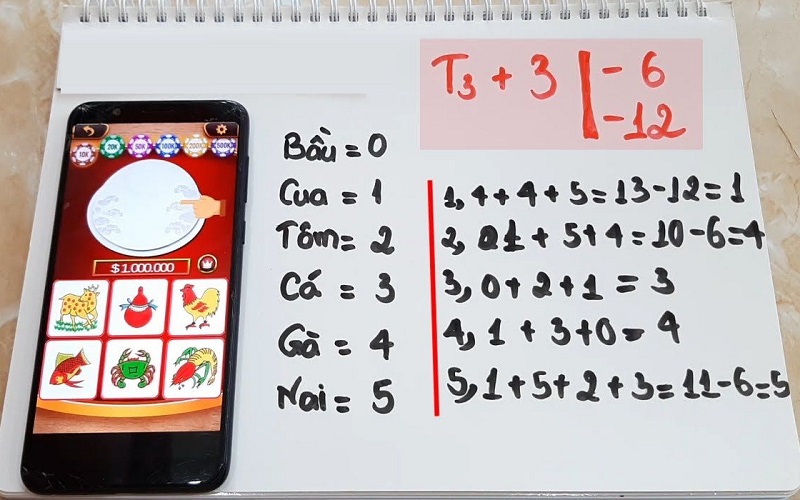 10K 20K 50K 100K 200K 500K
$1.000.000
T3 + 3 | - 6
- 12
Bầu = 0
Cua = 1
Tôm = 2
Cá = 3
Gà = 4
Nai = 5
1, 4 + 4 + 5 = 13 - 12 = 1
2, 1 + 5 + 4 = 10 - 6 = 4
3, 0 + 2 + 1 = 3
4, 1 + 3 + 0 = 4
5, 1 + 5 + 2 + 3 = 11 - 6 = 5